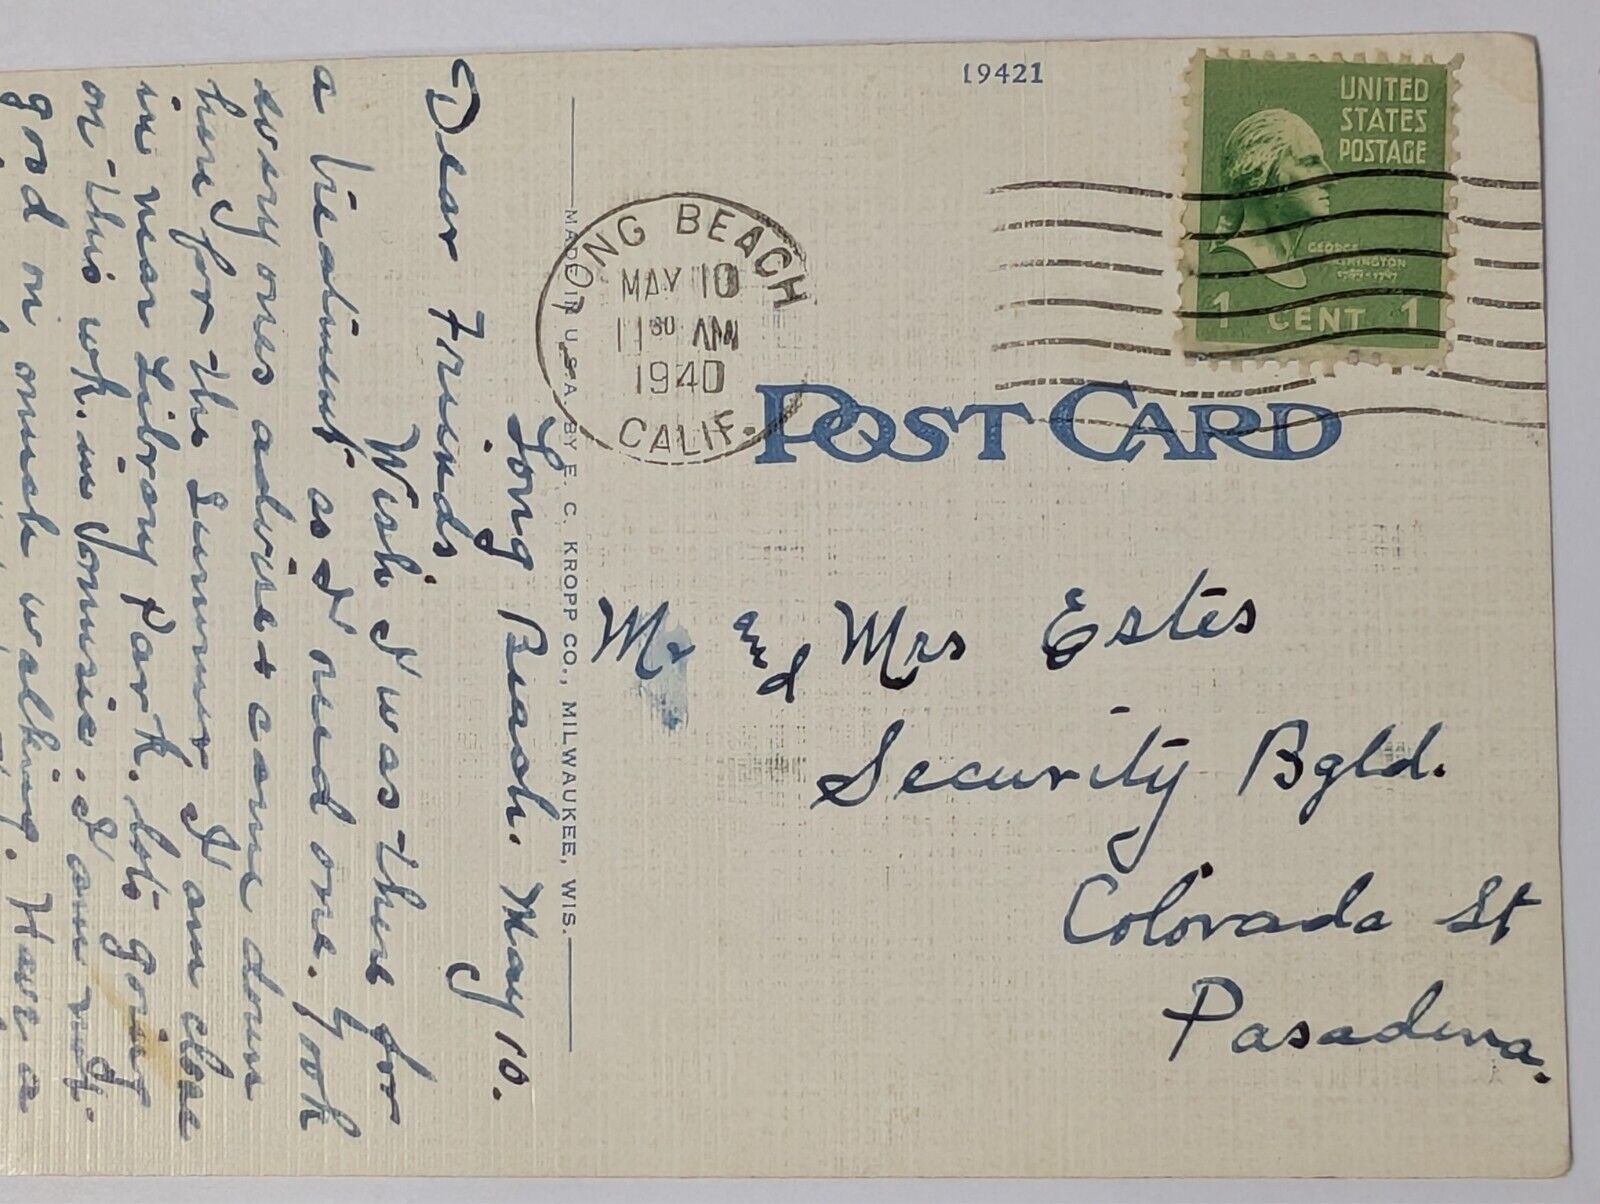 19421
UNITED
STATES
POSTAGE
GEORGE
WASHINGTON
1789-1797
1 CENT 1
LONG BEACH
MAY 10
11 30 AM
1940
CALIF.
POST CARD
MADE IN U.S.A. BY E. C. KROPP CO., MILWAUKEE, WIS.
Long Beach. May 10.
Dear Friends
Wish I was there for
a treatment as I need one. Took
every ones advise + came down
here for the Summer, I am close
in near Library Park. lots going
on this wk. in Music. I am not
good on much walking. Have a
Mr and Mrs Estes
Security Bgld.
Colorada St
Pasadena.